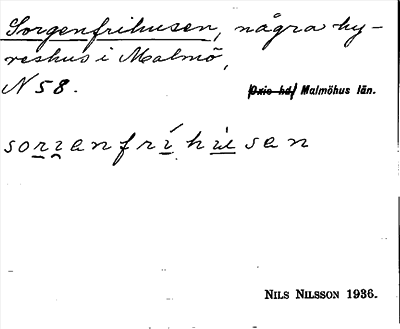 Sorgenfrihusen, några hy-
reshus i Malmö,
N 58.
Oxie hd. Malmöhus län.
sorrenfríhúsen
NILS NILSSON 1936.